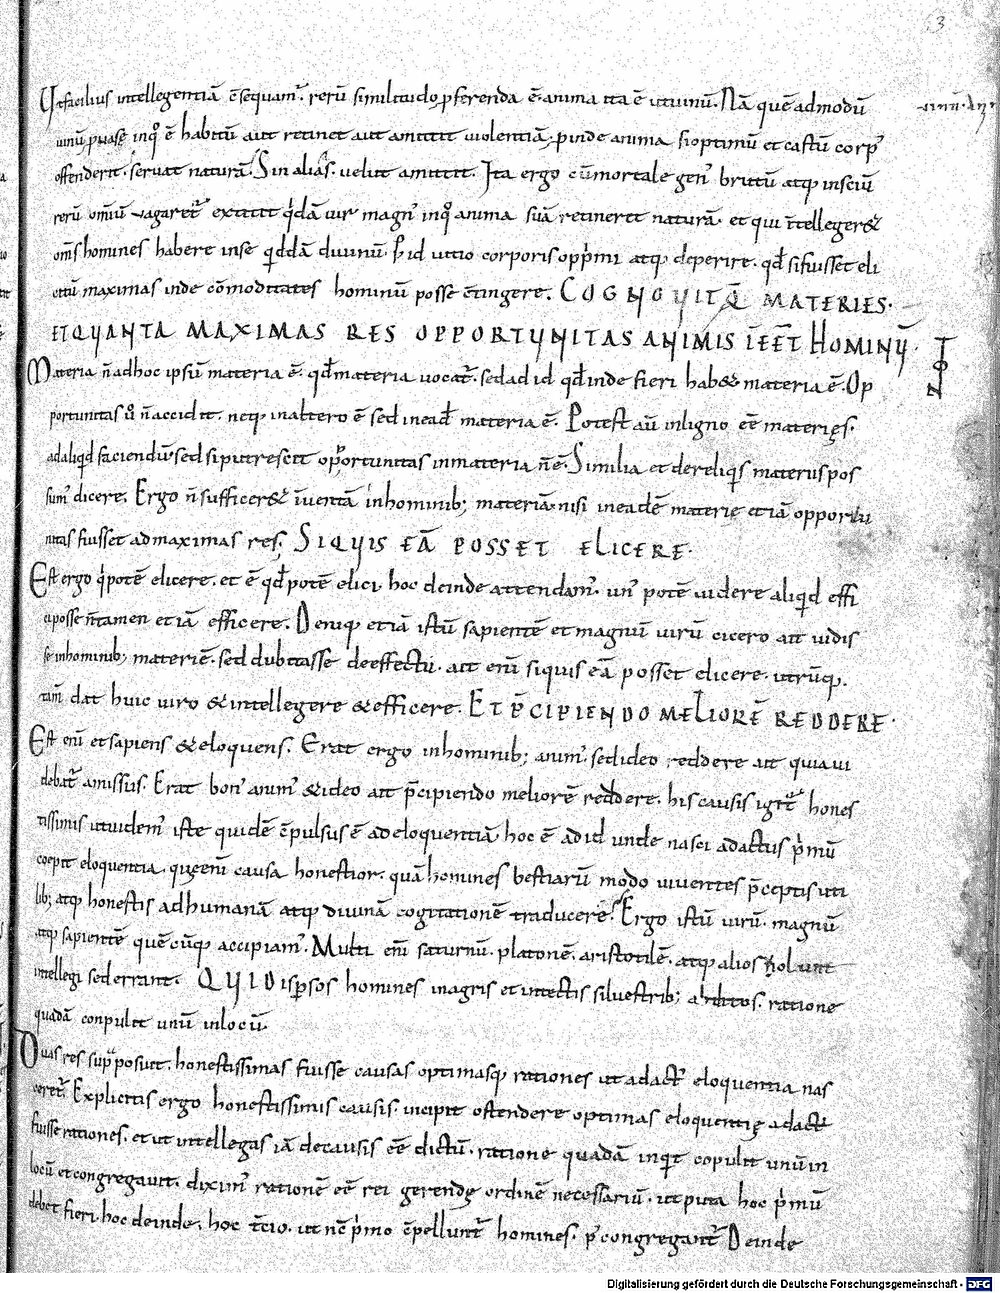 3
Ut facilius intellegentiā ēsequamꝰ. rerū similitudo p̄ferenda ē. anima ita ē ut uinū. Nā quēadmodū
uinū p uase inqͦ ē habitū aut retinet aut amittit uiolentiā. pinde anima si optimū et castū corpꝰ
offenderit. seruat naturā. Sin aliās. uelut amittit. Ita ergo cū mortale genꝰ brutū atqꝫ insciū
rerū omīu uagaret᷑ extitit qͥdā uir magnꝰ inqͦ anima suā retineret naturā. et qui ītellegeret
om̄s homines habere in se qͥddā diuinū. s; id uitio corporis opp̄mi atqꝫ deperire. qd̄ si fuisset eli
citū maximas inde cōmoditates hominū posse c̄tingere. COGNOUIT Q̄ MATERIES.
ET QUANTA MAXIMAS RES OPPORTUNITAS ANIMIS ĪEĒT HOMINŪ.
Materia n̄ adhoc ipsū materia ē. qd̄ materia uocat᷑. sed ad id qd̄ inde fieri habet materia ē. Op
portunitas ū n̄ accidit. neqꝫ in altero ē sed in ead̄ materia ē. Potest aū in ligno eē materies.
ad aliqd faciendū sed si putrescit opportunitas in materia n̄ ē. Similia et de reliqͥs materiis pos
sumꝰ dicere. Ergo n̄ sufficeret īuentā in hominib; materiā. nisi in eadē materie etiā opportu
nitas fuisset ad maximas res. SI QUIS EĀ POSSET ELICERE.
Est ergo qͥ potē elicere. et ē qd̄ potē elici. hoc deinde attendamꝰ. unꝰ potē uidere aliqd effi
ci posse n̄ tamen etiā efficere. Deniqꝫ etiā istū sapientē et magnū uirū cicero ait uidis
se in hominib; materiē. sed dubitasse de effectu. ait eni siquis eā posset elicere. utrūqꝫ.
tam dat huic uiro et intellegere et efficere. ET P̄CIPIENDO MELIORĒ REDDERE.
Est eni et sapiens et eloquens. Erat ergo in hominib; animꝰ. sed ideo reddere ait quia ui
debat᷑ amissus. Erat bonꝰ animꝰ et ideo ait p̄cipiendo meliorē reddere. his causis igit᷑ hones
tissimis ut uidemꝰ iste quidē c̄pulsus ē ad eloquentiā. hoc ē ad id unde nasci adactus p̄mū
coepit eloquentia. que eni causa honestior. quā homines bestiarū modo uiuentes p̄ceptis uti
lib; atqꝫ honestis ad humanā atqꝫ diuinā cogitationē traducere. Ergo istū uirū magnū
atqꝫ sapientē quēcūqꝫ accipiamꝰ. Multi eni saturnū. platonē. aristotilē. atqꝫ alios uolunt
intellegi sed errant. QUI Disp̄sos homines in agris et in tectis siluestrib; abditos. ratione
quadā conpulit unū in locū.
Duas res supͣ posuit. honestissimas fuisse causas optimasqꝫ rationes ut adactꝰ eloquentia nas
ceret᷑. Explicitis ergo honestissimis causis. incipit ostendere optimas eloquentie adacte
fuisse rationes. et ut intellegas iā de causis eē dictū. ratione quadā inqͥt copulit unū in
locū et congregauit. diximꝰ rationē eē rei gerende ordinē necessariū. ut puta hoc p̄mū
debet fieri. hoc deinde. hoc t̄cio. ut nc̄ p̄mo c̄pellunt᷑ homines. pꝰ congregant᷑ Deinde
Digitalisierung gefördert durch die Deutsche Forschungsgemeinschaft - DFG